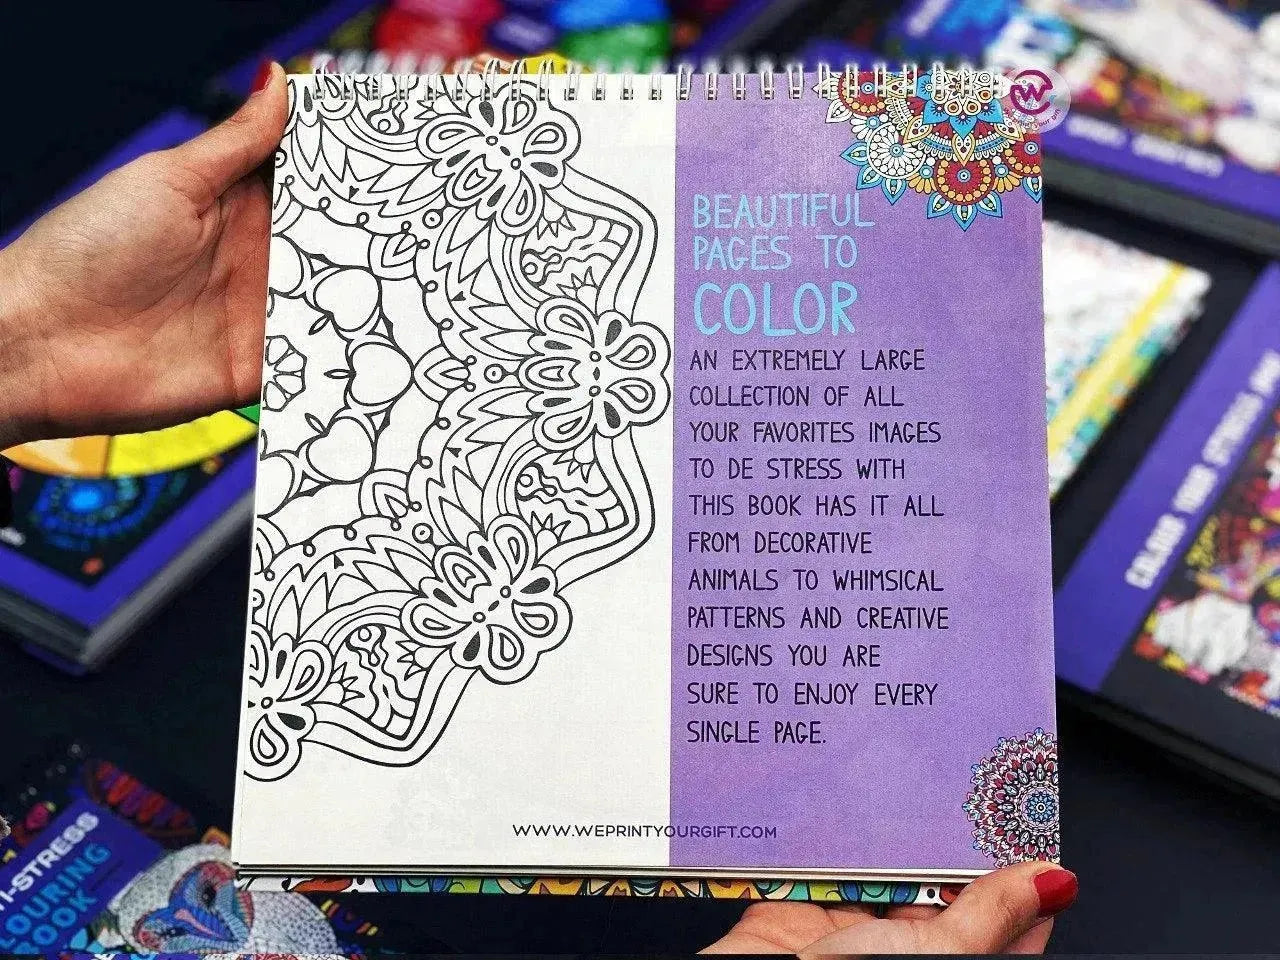 BEAUTIFUL
PAGES TO
COLOR
AN EXTREMELY LARGE
COLLECTION OF ALL
YOUR FAVORITES IMAGES
TO DE STRESS WITH
THIS BOOK HAS IT ALL
FROM DECORATIVE
ANIMALS TO WHIMSICAL
PATTERNS AND CREATIVE
DESIGNS YOU ARE
SURE TO ENJOY EVERY
SINGLE PAGE.
WWW.WEPRINTYOURGIFT.COM
I-STRESS
OURING
BOOK
COLOUR YOUR STRESS